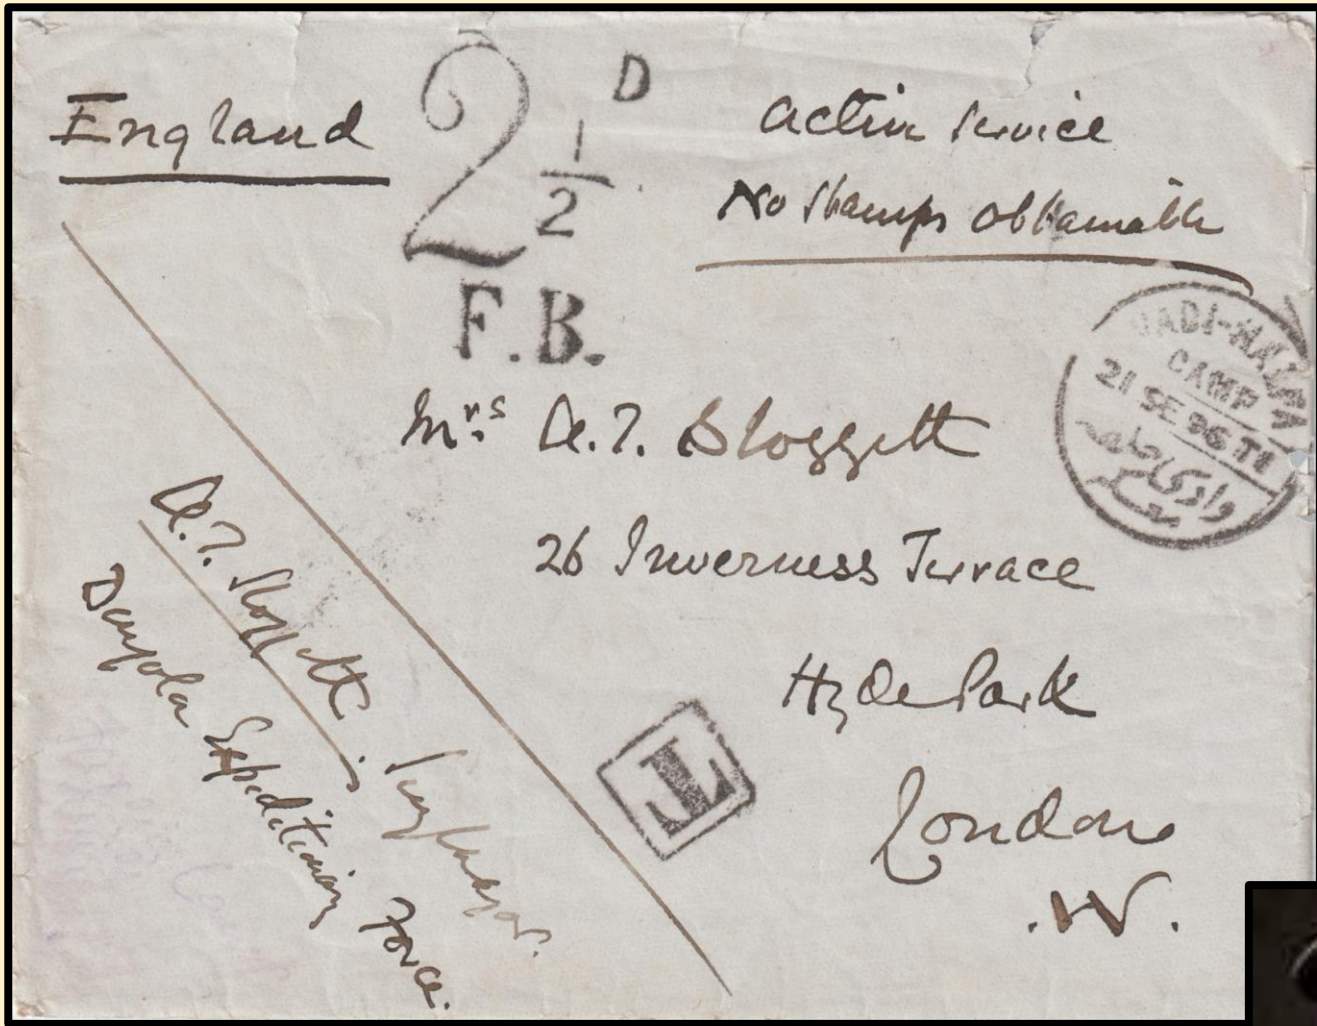 England
2 1/2 D
F.B.
Active Service
No Stamps Obtainable
WADI-HALFA
CAMP
21 SE 96 T1
وادى حلفه
معسكر
Mrs. A.T. Sloggett
26 Inverness Terrace
Hyde Park
London
.W.
A.T. Sloggett
Dongola Expeditionary Force.
T